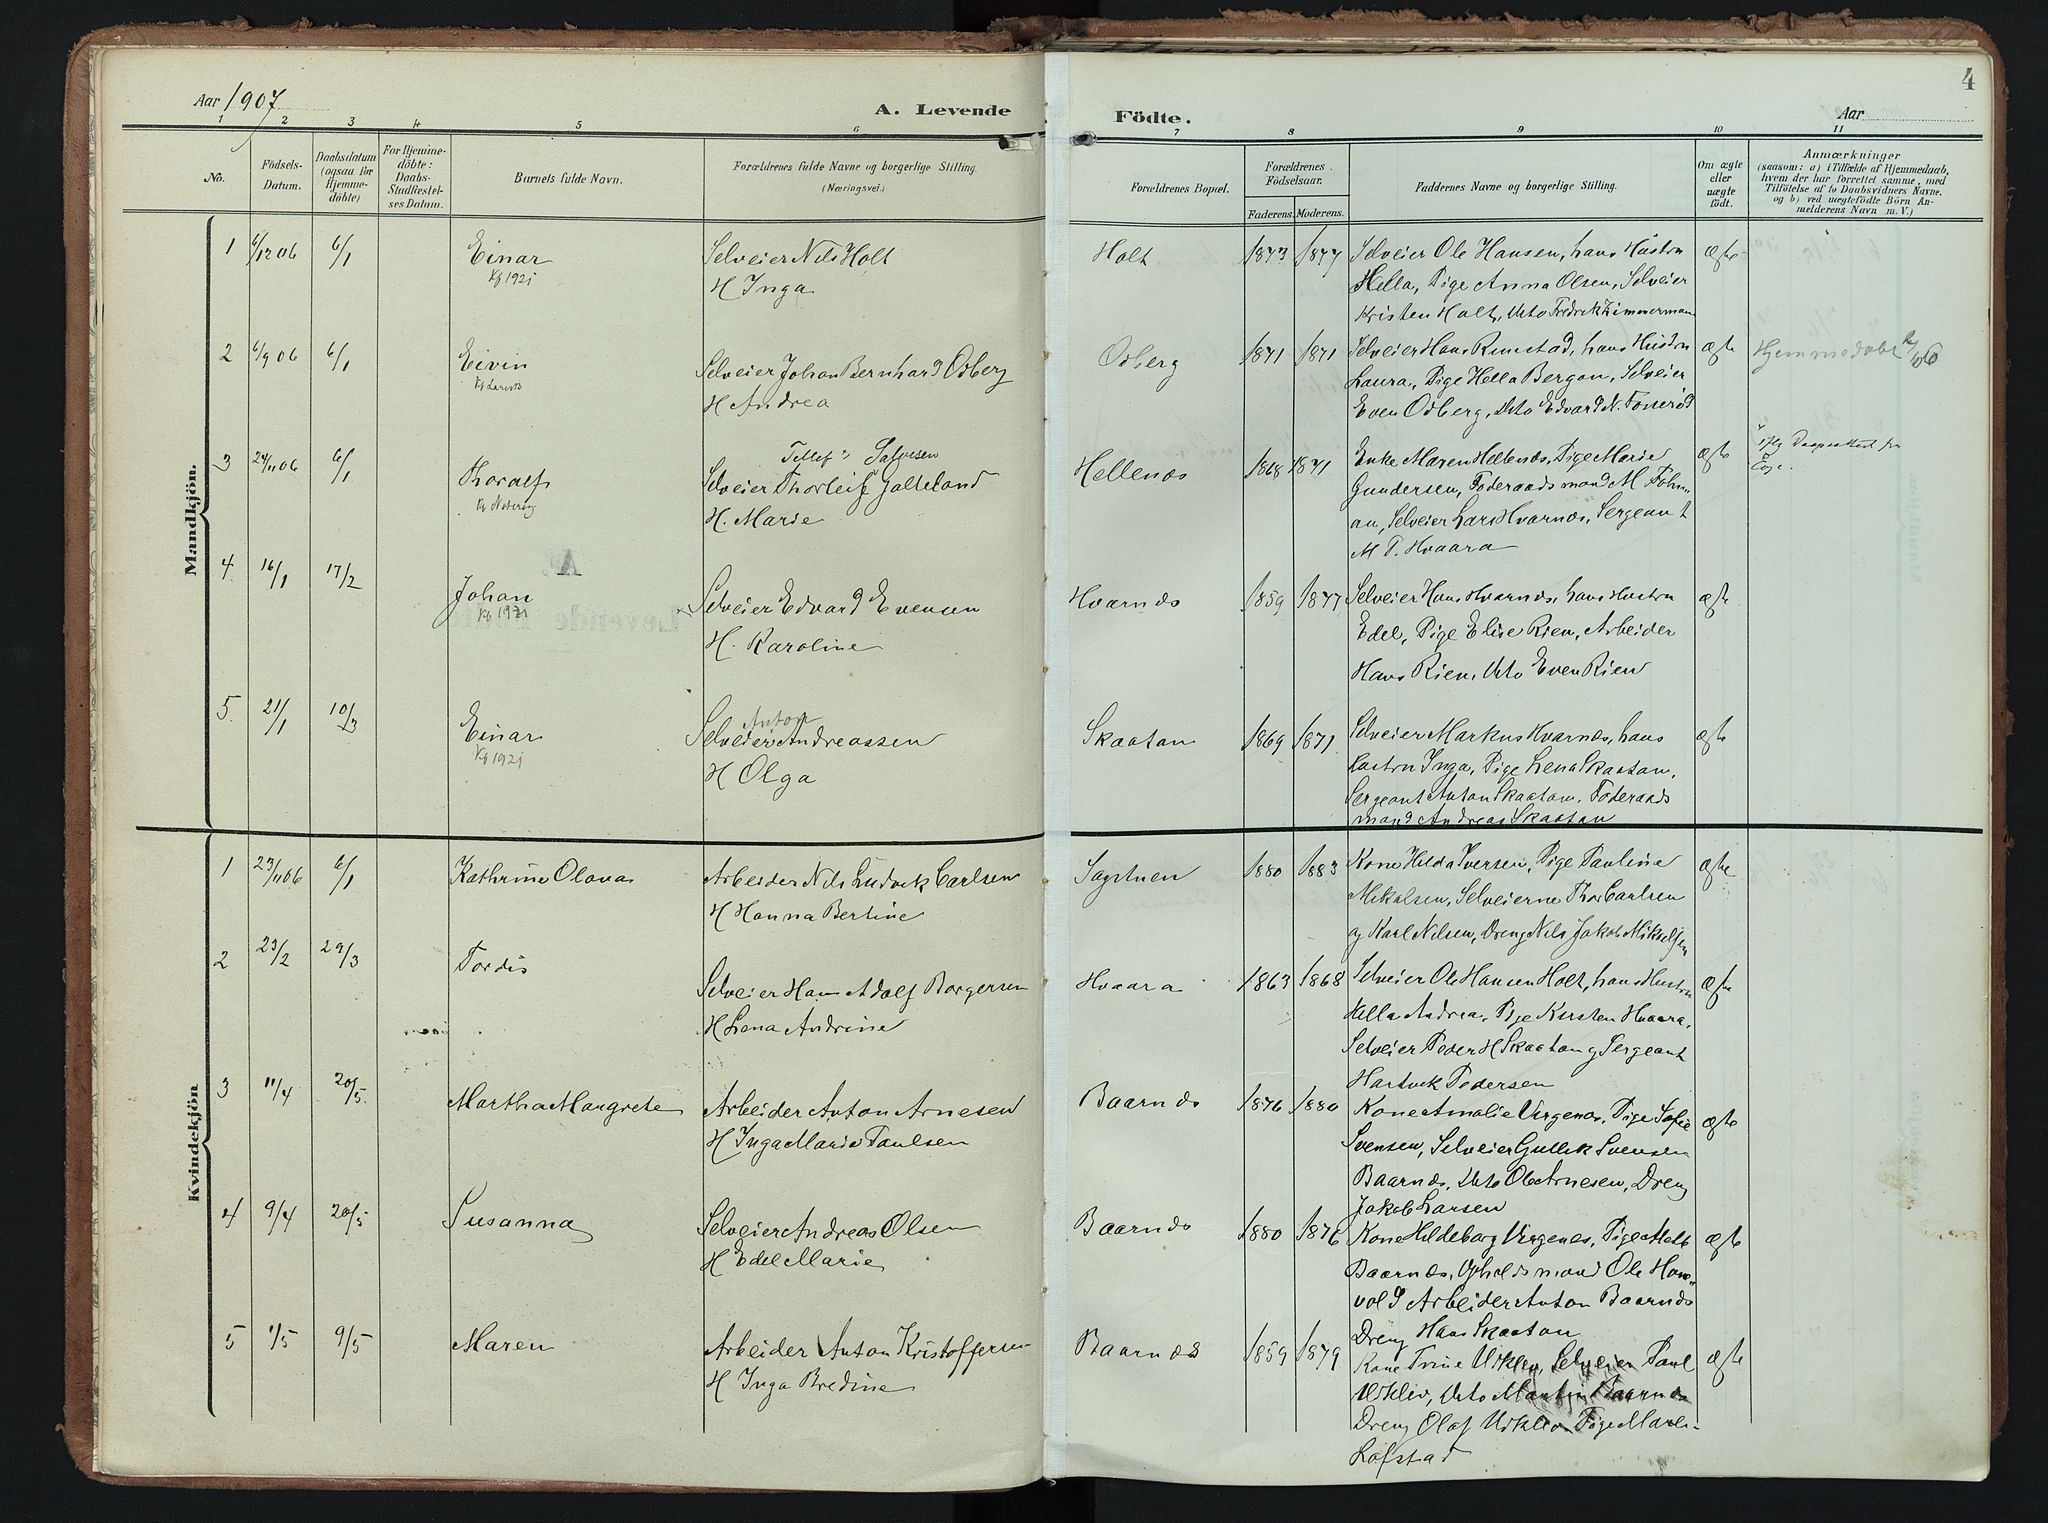 Aar 1907
A. Levende
Födte.
Aar
4
1 2 3 4 5 6 7 8 9 10 11
No.
Födsels-
Datum.
Daabsdatum
(ogsaa for
Hjemme-
döbte)
For Hjemme-
döbte:
Daabs-
Stadfæstel-
ses Datum.
Barnets fulde Navn.
Forældrenes fulde Navne og borgerlige Stilling.
(Næringsvei.)
Forældrenes Bopæl.
Forældrenes
Födselsaar.
Faderens. Moderens.
Faddernes Navne og borgerlige Stilling.
Om ægte
eller
uægte
födt.
Anmærkninger
(saasom: a) i Tilfælde af Hjemmedaab,
hvem der har forrettet samme, med
Tilföielse af to Daabsvidners Navne,
og b) ved uægtefödte Börn An-
melderens Navn m. V.)
Mandkjön.
1 6/12 06 6/1 Einar Selveier Nils Holt Holt 1873 1877 Selveier Ole Hansen, hans Hustru ægte
Kf 1921 H Inga Hella, Pige Anna Olsen, Selveier
Kristen Holt, Ukto Fredrik Zimmerman
2 6/9 06 6/1 Eivin Selveier Johan Bernhard Odberg Odberg 1871 1871 Selveier Hans Rimstad, hans Hustru ægte Hjemmedøbt
Kf Larvik H Andrea Laura, Pige Hella Bergan, Selveier
Even Odberg, Ukto Edvard N. Fonerød
Tellef Salvesen
3 24/11 06 6/1 Thoralf Selveier Thorleif Galteland Hellenæs 1868 1871 Enke Maren Hellenæs, Pige Marie ægte
H. Marie Gundersen, Føderaadsmand M Johan-
an, Selveier Lars Hvarnæs, Sergeant
M P. Hvaara
iflg Daapsattest fra
4 16/1 17/2 Johan Selveier Edvard Evensen Hvarnæs 1859 1877 Selveier Hans Hvarnæs, hans Hustru ægte
Kf 1921 H. Karoline Edel, Pige Elise Rien, Arbeider
Hans Rien, Ukto Even Rien
5 21/1 10/3 Einar Selveier Anton Andreassen Skaatan 1869 1871 Selveier Markus Hvarnæs, hans ægte
Kf 1921 H Olga Hustru Inga, Pige Lena Skaatan,
Sergeant Anton Skaatan, Føderaads
mand Andreas Skaatan
Kvindekjön
1 23/11 06 6/1 Kathrine Olava Arbeider Nils Ludvik Carlsen Sagstuen 1880 1883 Kone Hilda Iversen, Pige Pauline ægte
H Hanna Bertine Mikalsen, Selveierne Thor Carlsen
og Karl Nilsen, Dreng Nils Jakob Mikkelsen
2 23/2 29/3 Tordis Selveier Hans Adolf Borgersen Hvaara 1863 1868 Selveier Ole Hansen Holt, hans Hustru ægte
H Lena Andrine Hella Andrea, Pige Kirsten Hvaara,
Selveier Peder H Skaatan og Sergeant
Hartvik Pedersen
3 11/4 20/5 Martha Margrete Arbeider Anton Arnesen Baarnæs 1876 1880 Kone Amalie Virgenæs, Pige Sofie ægte
H Inga Marie Paulsen Svensen, Selveier Gullik Svensen
Baarnæs, Ukto Ole Arnesen, Dreng
Jakob Larsen
4 9/4 20/5 Susanna Selveier Andreas Olsen Baarnæs 1880 1876 Kone Hildeborg Virgenæs, Pige Mell ægte
H Edel Marie Baarnæs, Opholdsmand Ole Hon-
vold Arbeider Anton Baarnæs
Dreng Hans Skaatan
5 1/5 9/5 Maren Arbeider Anton Kristoffersen Baarnæs 1859 1879 Kone Trine Urklev, Selveier Paul ægte
H Inga Bredine Urklev, Ukto Martin Baarnæs
Dreng Olaf Urklev Pige Maren
Lofstad